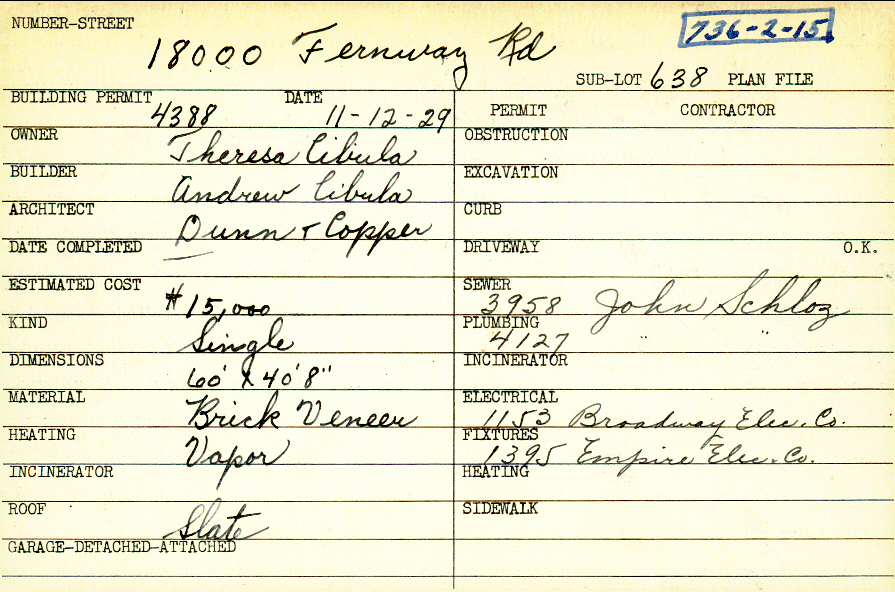 NUMBER-STREET
18000 Fernway Rd
736-2-15
SUB-LOT 638 PLAN FILE
BUILDING PERMIT DATE
4388 11-12-29
PERMIT CONTRACTOR
OWNER
Theresa Cibula
OBSTRUCTION
BUILDER
Andrew Cibula
EXCAVATION
ARCHITECT
Dunn + Copper
CURB
DATE COMPLETED
DRIVEWAY O.K.
ESTIMATED COST
$15,000
SEWER
3958 John Schloz
KIND
Single
PLUMBING
4127 " "
DIMENSIONS
60' X 40' 8"
INCINERATOR
MATERIAL
Brick Veneer
ELECTRICAL
1153 Broadway Elec. Co.
HEATING
Vapor
FIXTURES
1395 Empire Elec. Co.
INCINERATOR
HEATING
ROOF
Slate
SIDEWALK
GARAGE-DETACHED-ATTACHED